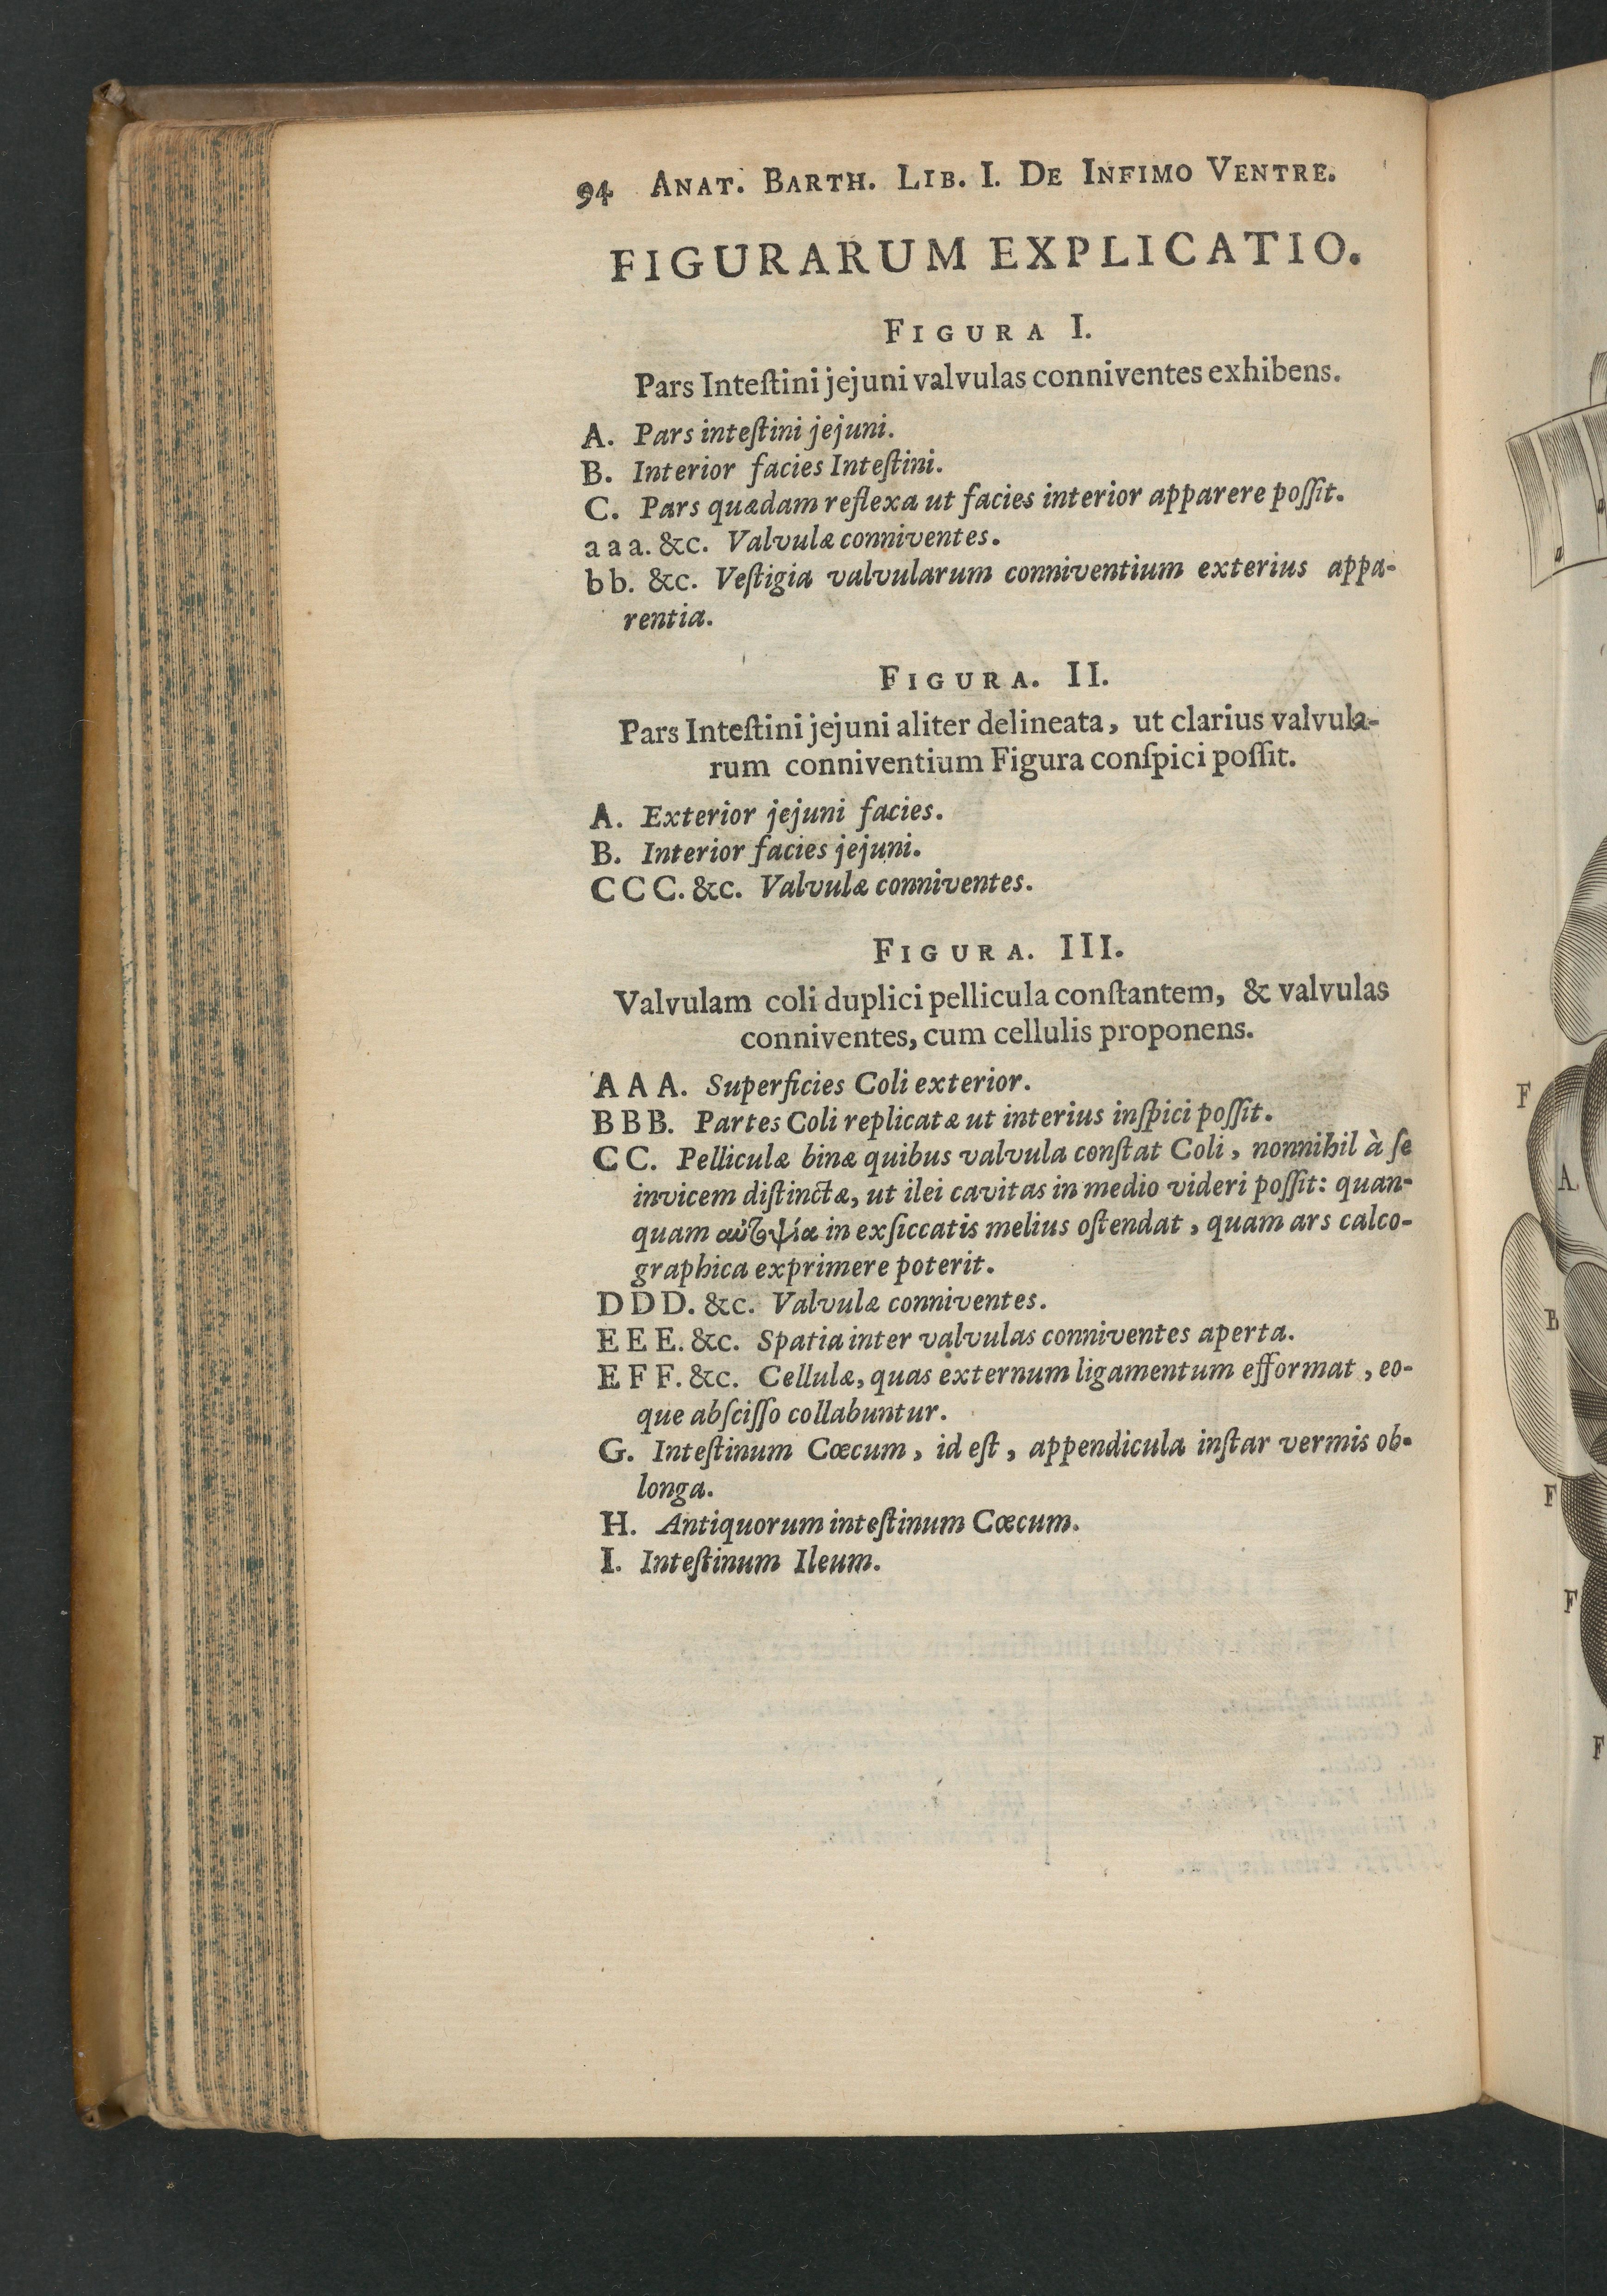 94 ANAT. BARTH. LIB. I. DE INFIMO VENTRE.
FIGURARUM EXPLICATIO.
FIGURA I.
Pars Inteſtini jejuni valvulas conniventes exhibens.
A. Pars inteſtini jejuni.
B. Interior facies Inteſtini.
C. Pars quædam reflexa ut facies interior apparere poſſit.
a a a. &c. Valvulæ conniventes.
b b. &c. Veſtigia valvularum conniventium exterius appa-
rentia.
FIGURA. II.
Pars Inteſtini jejuni aliter delineata, ut clarius valvula-
rum conniventium Figura conſpici poſſit.
A. Exterior jejuni facies.
B. Interior facies jejuni.
C C C. &c. Valvulæ conniventes.
FIGURA. III.
Valvulam coli duplici pellicula conſtantem, & valvulas
conniventes, cum cellulis proponens.
A A A. Superficies Coli exterior.
B B B. Partes Coli replicatæ ut interius inſpici poſſit.
C C. Pelliculæ binæ quibus valvula conſtat Coli, nonnihil à ſe
invicem diſtinctæ, ut ilei cavitas in medio videri poſſit: quan-
quam αὐτοψία in exſiccatis melius oſtendat, quam ars calco-
graphica exprimere poterit.
D D D. &c. Valvulæ conniventes.
E E E. &c. Spatia inter valvulas conniventes aperta.
E F F. &c. Cellulæ, quas externum ligamentum efformat, eo-
que abſciſſo collabuntur.
G. Inteſtinum Cœcum, id eſt, appendicula inſtar vermis ob-
longa.
H. Antiquorum inteſtinum Cœcum.
I. Inteſtinum Ileum.
F
A
B
F
F
F